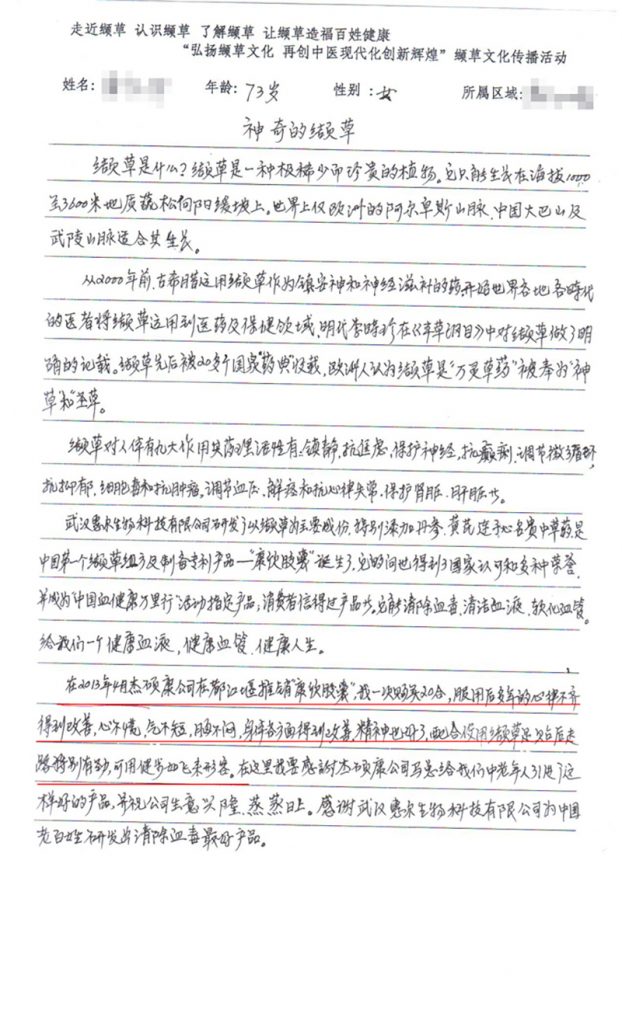 走近缬草 认识缬草 了解缬草 让缬草造福百姓健康
“弘扬缬草文化 再创中医现代化创新辉煌”缬草文化传播活动
姓名: 年龄: 73岁 性别:女 所属区域:
神奇的缬草
缬草是什么?缬草是一种极稀少而珍贵的植物。它只能生长在海拔1000
至3600米地质疏松向阳缓坡上。世界上仅欧洲的阿尔卑斯山脉、中国大巴山及
武陵山脉适合其生长。
从2000年前,古希腊运用缬草作为镇安神和神经滋补的药,开始世界各地各时代
的医者将缬草运用到医药及保健领域。明代李时珍在《本草纲目》中对缬草做了明
确的记载。缬草先后被20多个国家“药典”收载,欧洲人认为缬草是“万灵草药”被奉为“神
草”和“圣草。
缬草对人体有九大作用其药理活性有:镇静、抗焦虑、保护神经、抗癫痫、调节微循环,
抗抑郁、细胞毒和抗肿瘤、调节血压、解痉和抗心律失常、保护肾脏、肝脏等。
武汉惠尔生物科技有限公司研发了以缬草为主要成份,特别添加丹参、黄芪、莲心名贵中草药是
中国第一个缬草组方及制备专利产品—“康欣胶囊”诞生了,它的问也得到了国家认可和多种荣誉,
并成为“中国血健康万里行”活动指定产品;消费者信得过产品等。它能清除血毒,清洁血液、软化血管。
给我们一个健康血液,健康血管、健康人生。
在2013年4月杰硕康公司在都江堰推销“康欣胶囊”,我一次购买20合,服用后多年的心律不齐
得到改善,心不慌,气不短,胸不闷,身体各方面得到改善,精神也好了,配合使用缬草足贴后走
路特别有劲,可用健步如飞来形容。在这里我要感谢杰硕康公司马总给我们中老年人引进了这
样好的产品,并祝公司生意兴隆、蒸蒸日上。感谢武汉惠尔生物科技有限公司为中国
老百姓研发出清除血毒最好产品。